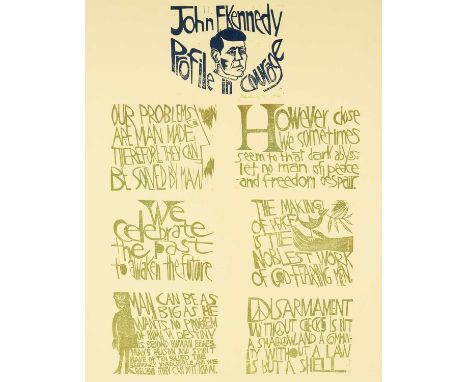 John F Kennedy
Profile in Courage
OUR PROBLEMS
ARE MAN MADE
THEREFORE THEY CAN
BE SOLVED BY MAN
However close
we sometimes
seem to that dark abyss
let no man of peace
and freedom despair
We
celebrate
the past
to awaken the future
THE MAKING
OF PEACE
IS THE
NOBLEST WORK
OF GOD-FEARING MEN
MAN CAN BE AS
BIG AS HE
WANTS NO PROBLEM
OF HUMAN DESTINY
IS BEYOND HUMAN BEINGS
MAN'S REASON AND SPIRIT
DISARMAMENT
WITHOUT CHECKS IS BUT
A SHADOW AND A COMMUN
ITY WITHOUT LAW
IS BUT A SHELL